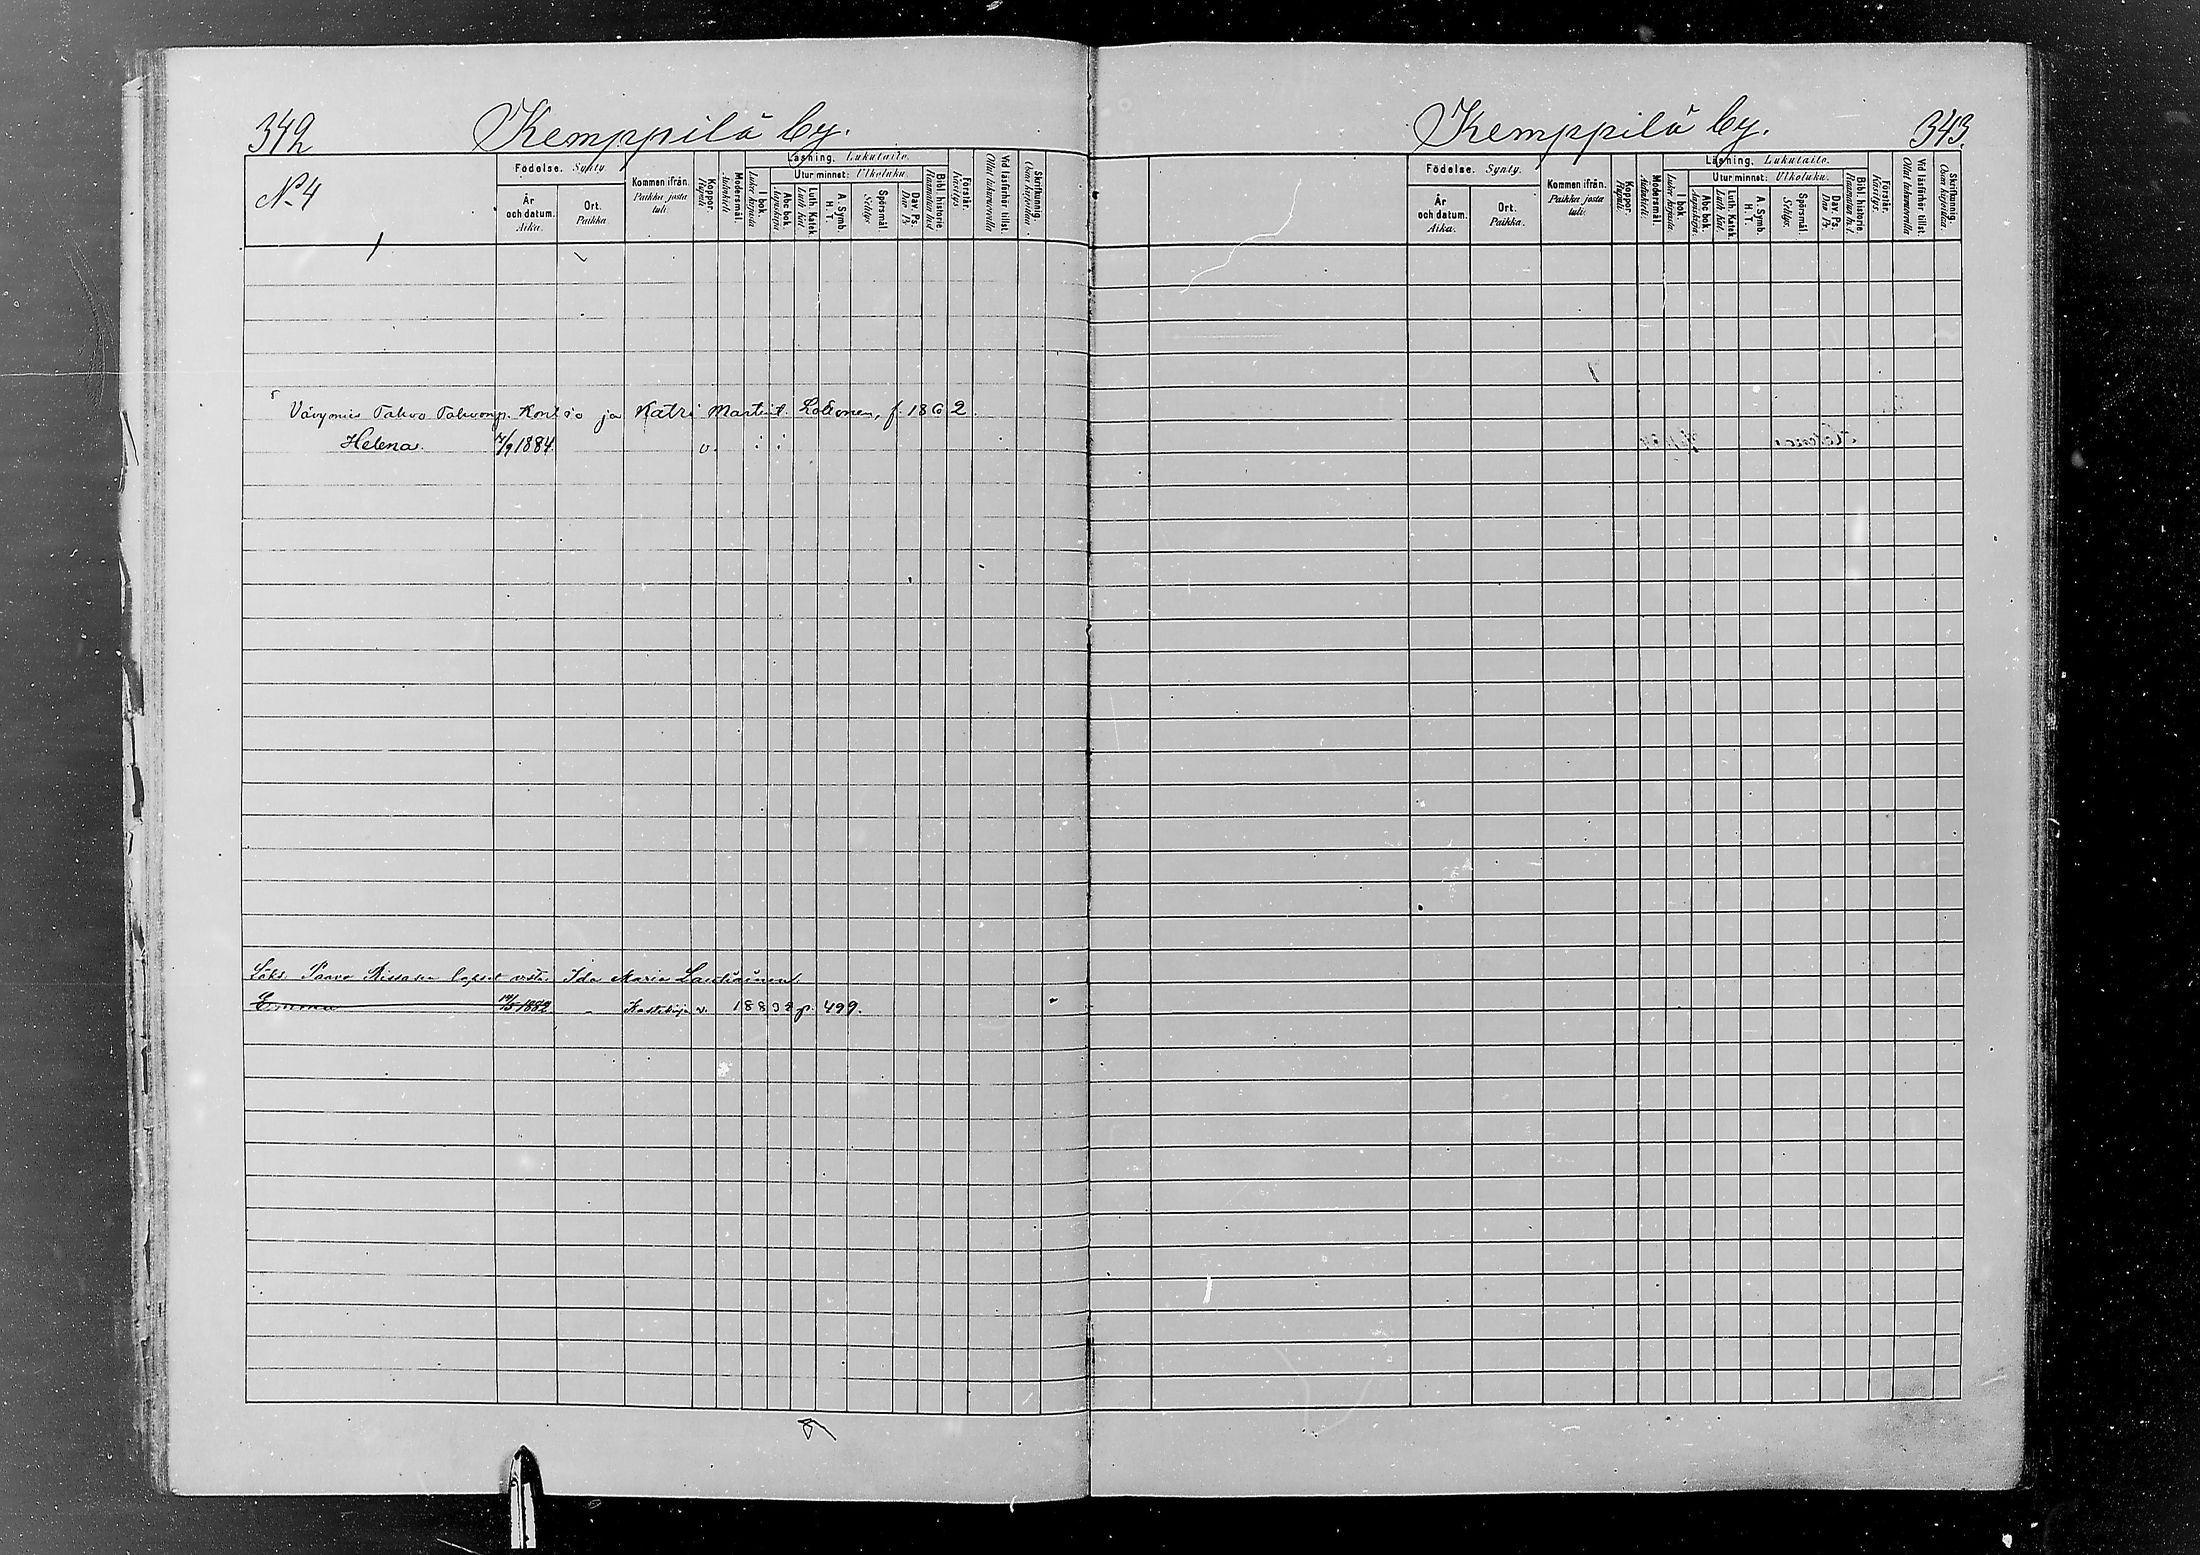 342
Kemppilä by.
N:4
Födelse. Synty.
År och datum. Aika.
Ort. Paikka.
Kommen ifrån. Paikka josta tuli.
Koppor. Rupuli.
Modersmål. Äidinkieli.
Läsning. Lukutaito.
I bok. Luku kirjasta
Utur minnet: Ulkoluku.
Abc bok. Aapiskirja
Luth. Katek.
A. Symb. H. T.
Spörsmål.
Dav. Ps. Dav. Ps.
Bibl. historie.
Förstår. Käsitys
Vid läsförhör tillst. Ollut lukuvuorolla
Skriftkunnig. Osaa kirjoittaa.
Vävymies Tahvo Tahvonp. Kontio ja Katri Martint. Lokonen, f. 1862
Helena. 1884. v.
Paavo Rissasen lapset Ida Maria
Emma 1882 v. 1883 p. 499.
Kemppilä by.
343.
Födelse. Synty.
År och datum. Aika.
Ort. Paikka.
Kommen ifrån. Paikka josta tuli.
Koppor. Rupuli.
Modersmål. Äidinkieli.
Läsning. Lukutaito.
I bok. Luku kirjasta.
Utur minnet: Ulkoluku.
Abc bok. Aapiskirja.
Luth. Katek.
A. Symb. H. T.
Spörsmål.
Dav. Ps. Dav. Ps.
Bibl. historie
Förstår. Käsitys.
Vid läsförhör tillst. Ollut lukuvuorolla
Skriftkunnig. Osaa kirjoittaa.